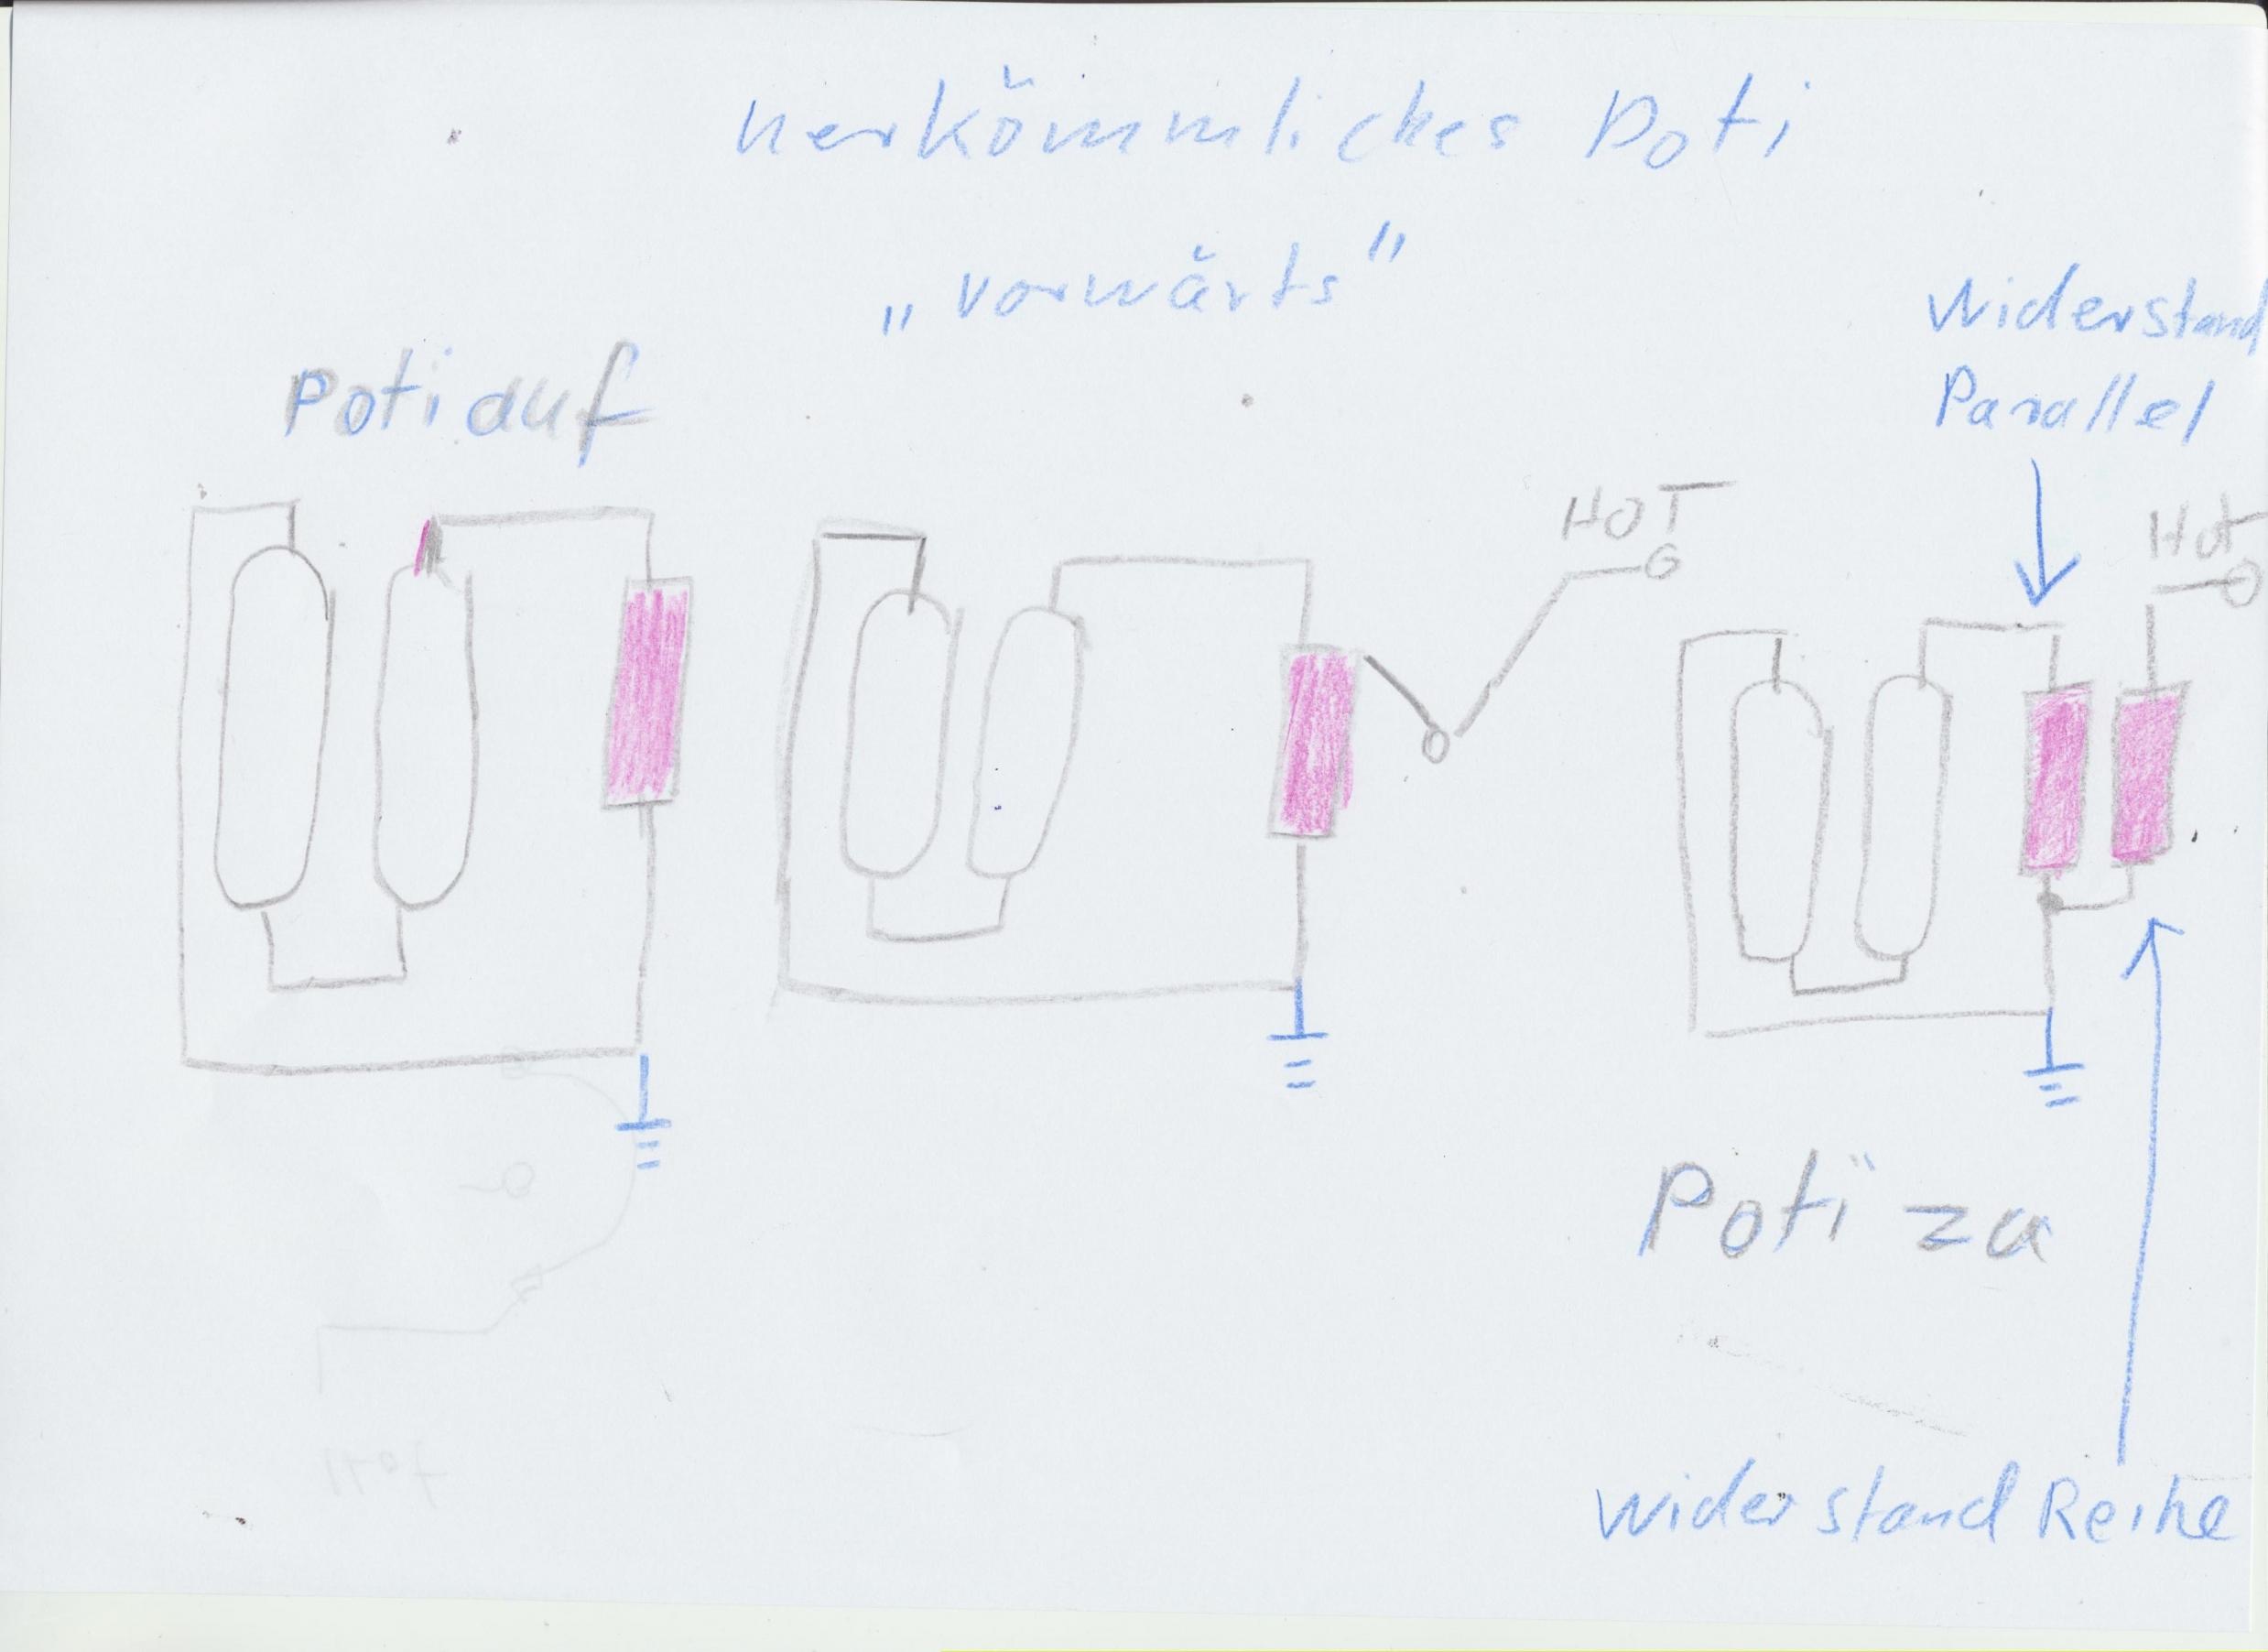 herkömmliches Poti
„vorwärts"
Widerstand
Parallel
Poti auf
HOT
Hot
Poti zu
Widerstand Reihe